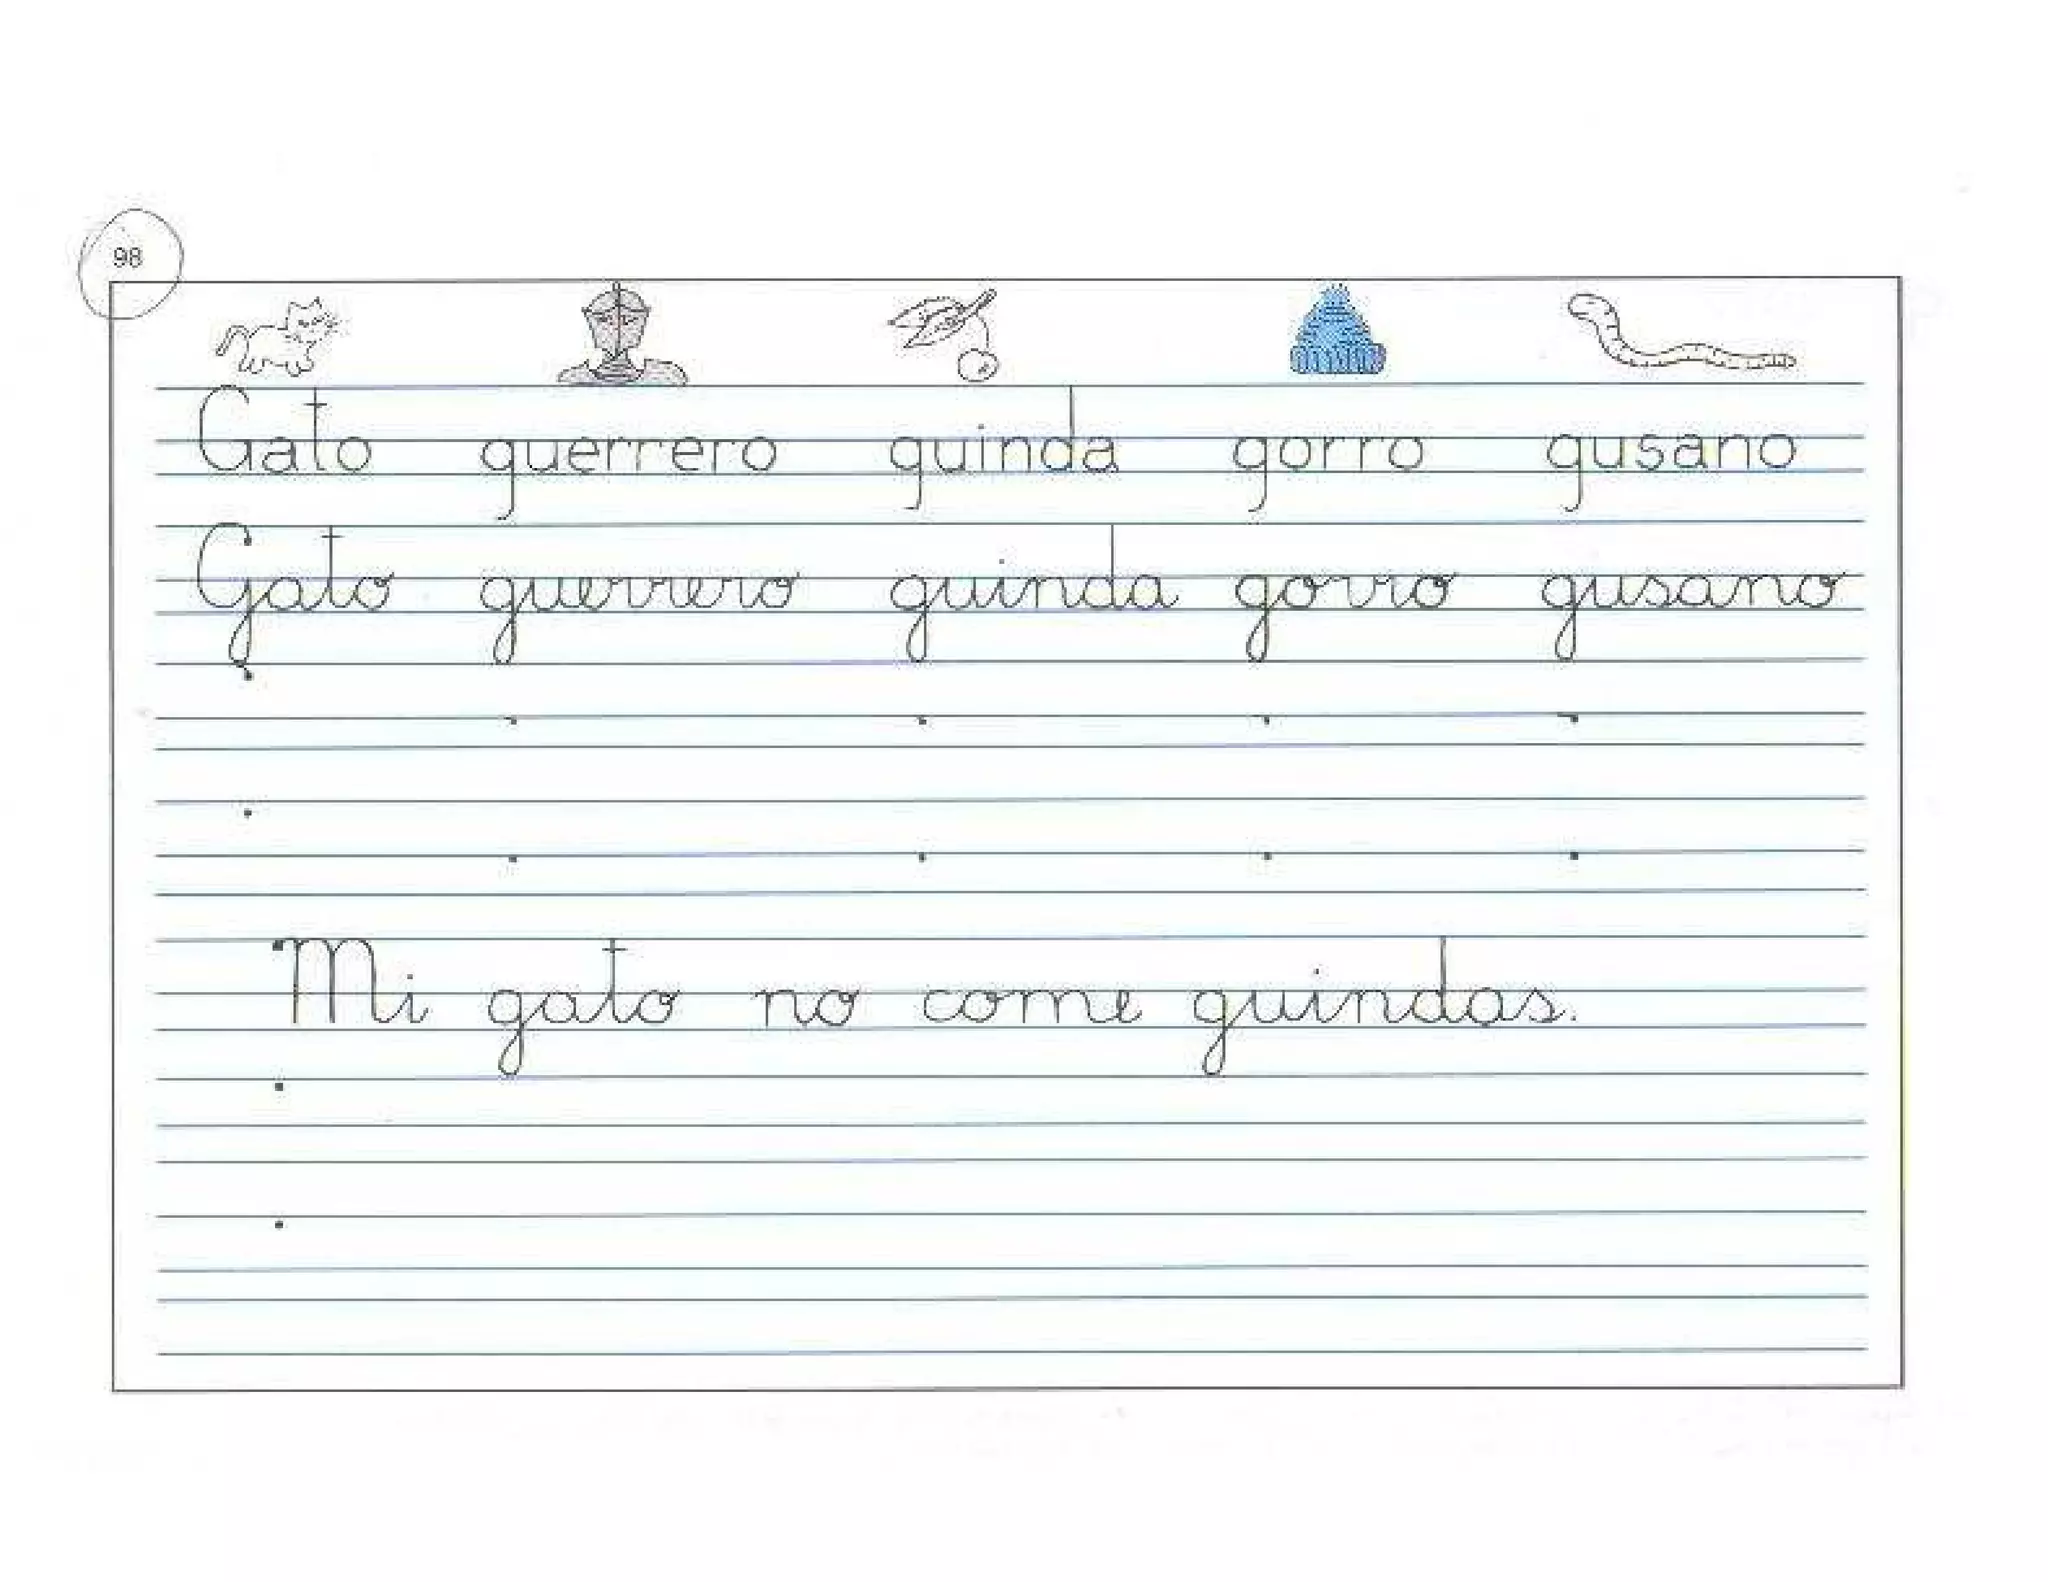 98
Gato guerrero guinda gorro gusano
Gato guerrero guinda gorro gusano
Mi gato no come guindas.